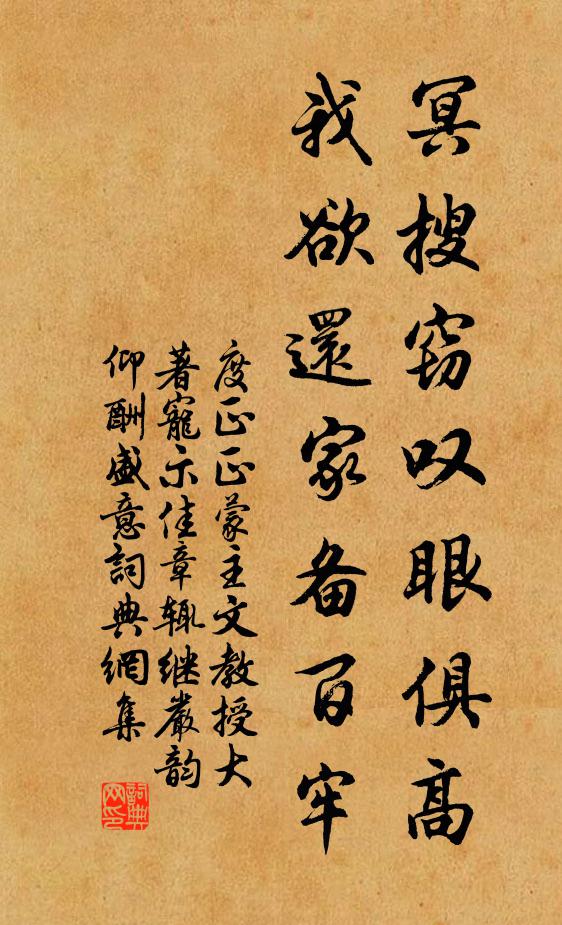 冥搜窃叹眼俱高
我欲還家备百牢
度正正蒙主文教授大
著寵示佳章辄继嚴韵
仰酬盛意詞典網集
詞典
网印